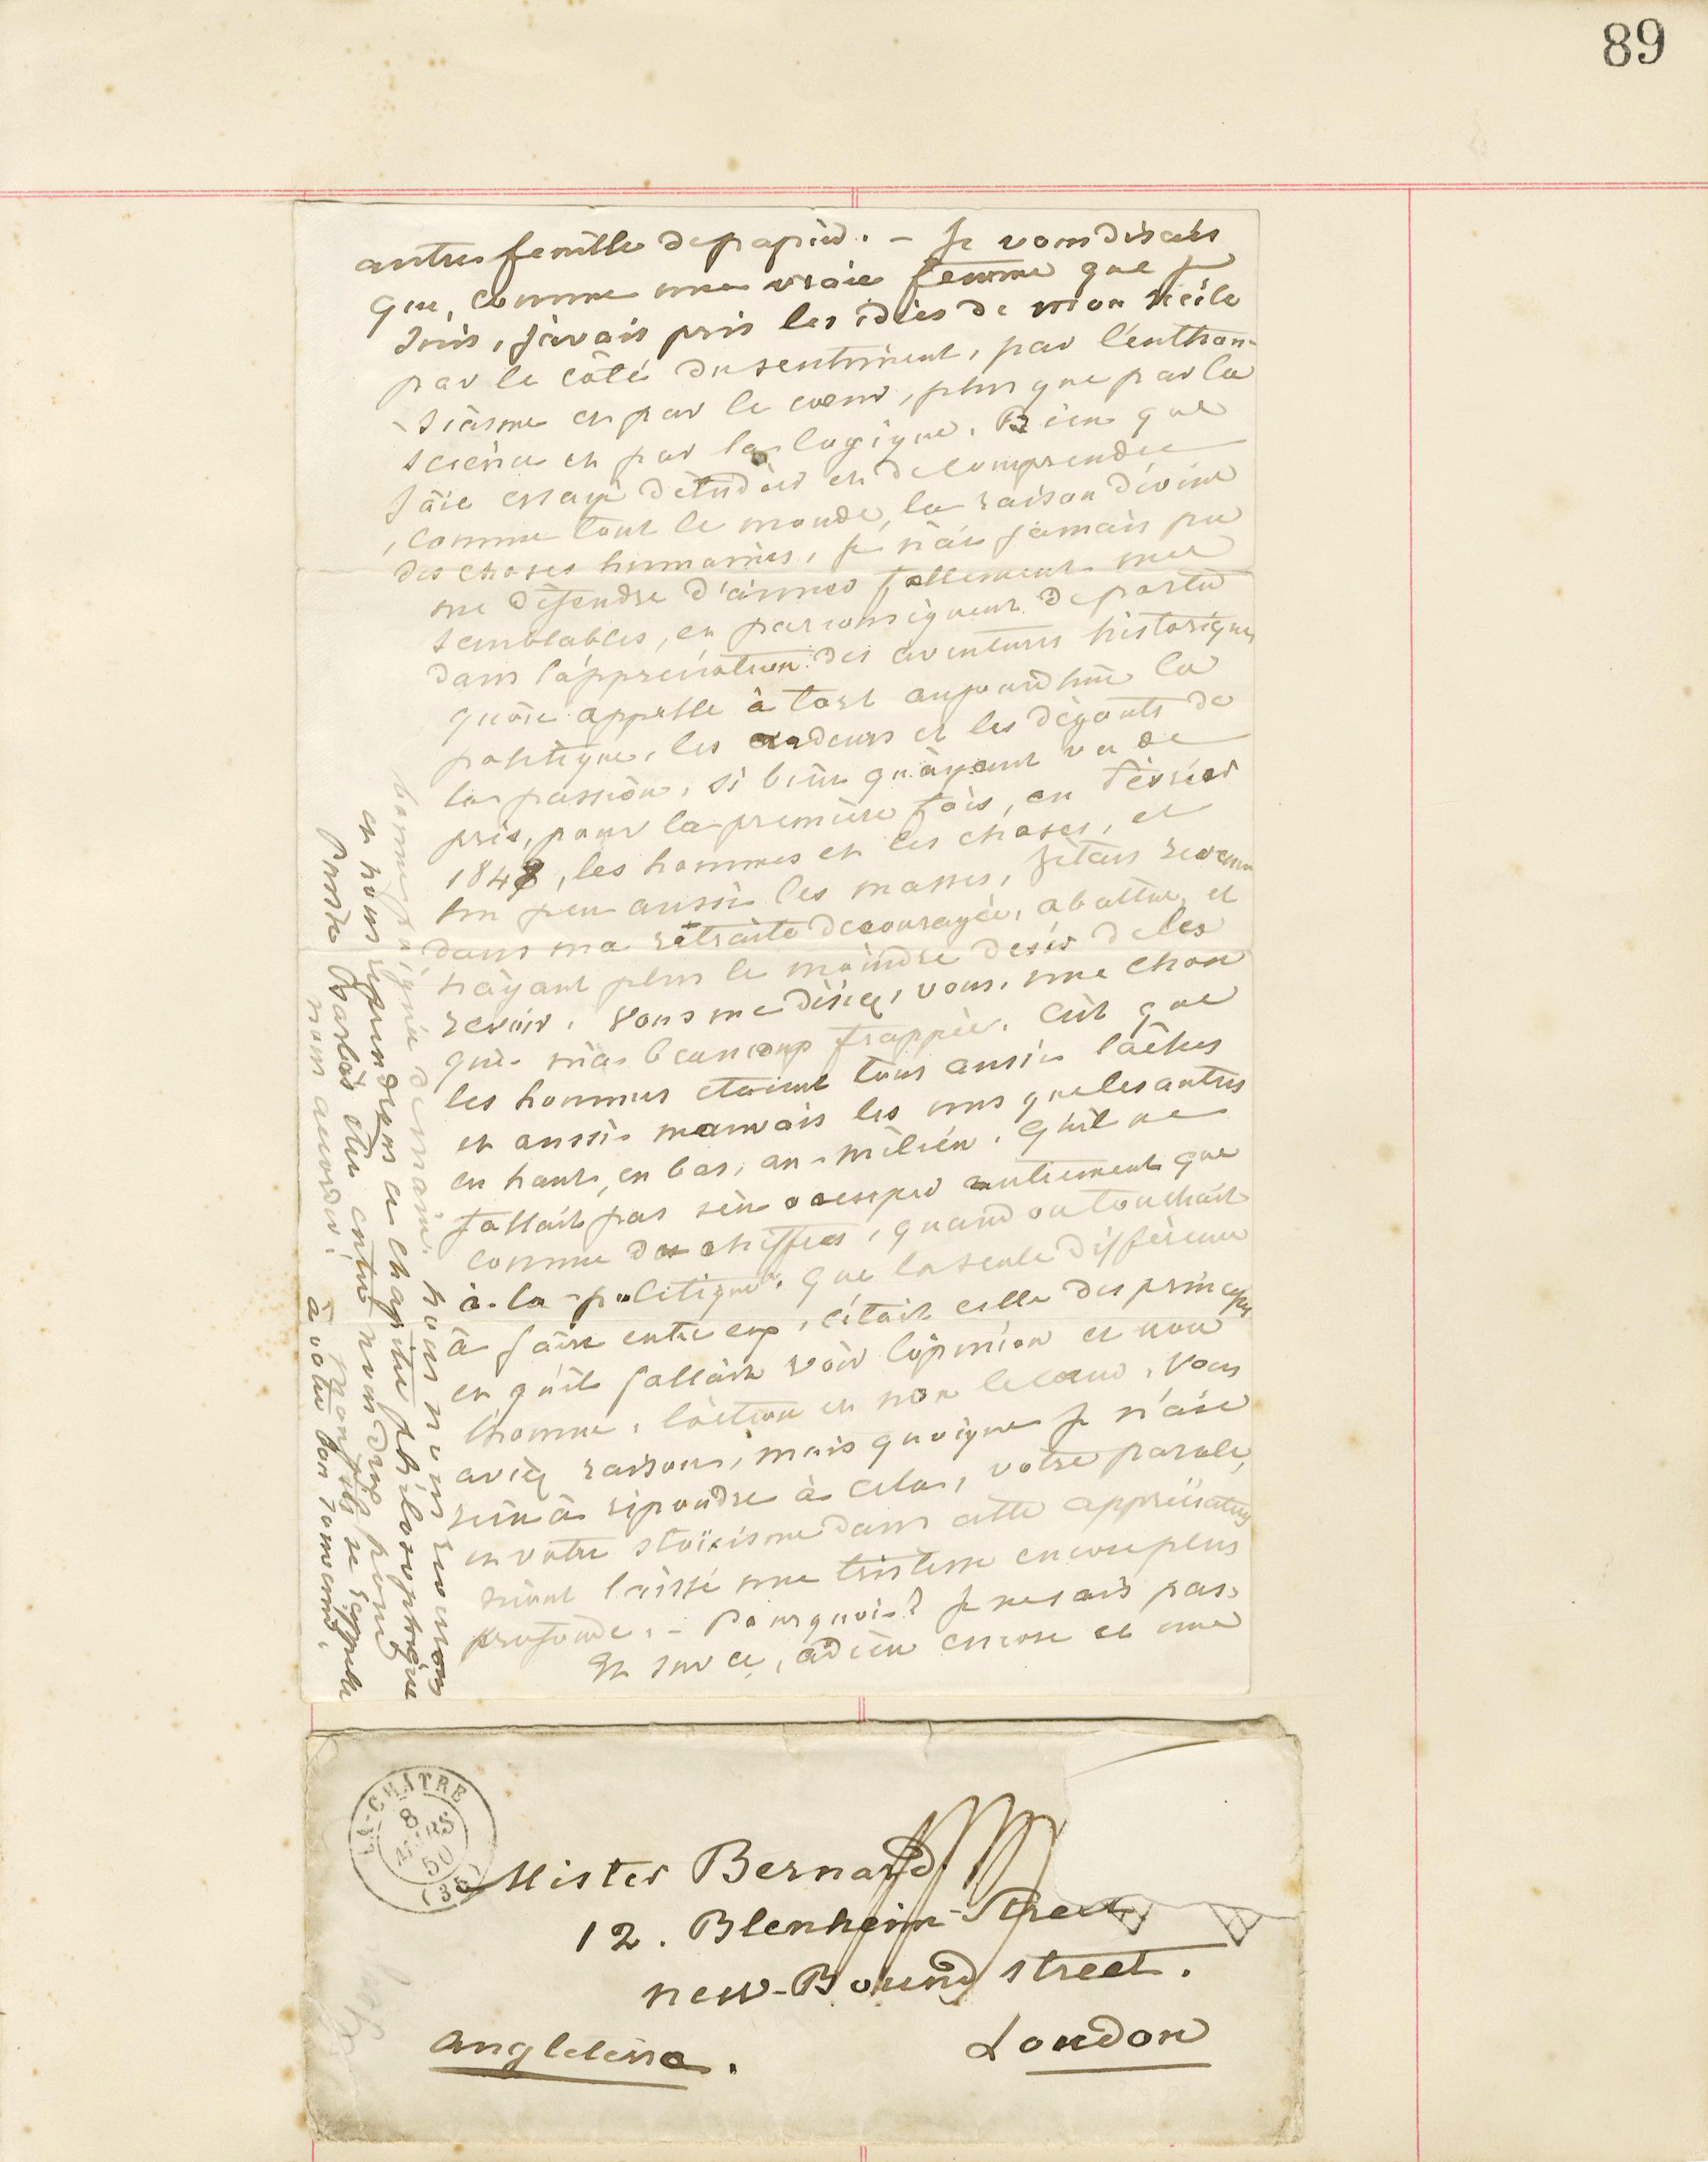 89
autre feuille de papier. — Je vous disais
que, comme une vraie femme que je
suis, j'avais pris les idées de mon siècle
par le côté du sentiment, par l'enthou-
-siasme et par le cœur, plus que par la
science et par la logique. Bien que
j'aie essayé d'étudier et de comprendre
, comme tout le monde, la raison divine
des choses humaines, je n'ai jamais pu
me défendre d'aimer follement mes
semblables, et par conséquent de porter
dans l'appréciation des aventures historiques
qu'on appelle à tort aujourd'hui la
politique, les ardeurs et les dégoûts de
la passion, si bien qu'ayant vu de
près, pour la première fois, en Février
1848, les hommes et les choses, et
un peu aussi les masses, j'étais revenue
dans ma retraite découragée, abattue, et
n'ayant plus le moindre désir de les
revoir. Vous me disiez, vous, une chose
qui m'a beaucoup frappée. C'est que
les hommes étaient tous aussi lâches
et aussi mauvais les uns que les autres
en haut, en bas, au milieu. Qu'il ne
fallait pas s'en occuper autrement que
comme des chiffres, quand on touchait
à la politique. Que la seule différence
à faire entre eux, c'était celle des principes
et qu'il fallait voir l'opinion et non
l'homme, l'action et non le cœur. Vous
aviez raison, mais quoique je n'aie
rien à répondre à cela, votre parole,
et votre stoïcisme dans cette appréciation
m'ont laissé une tristesse encore plus
profonde. — Pourquoi ? Je ne sais pas.
Et sur ce, adieu encore et une
bonne poignée de main. nous nous reverrons
et nous reprendrons ce chapitre philosophique
Puisse Barbès être entre nous deux pour
nous accorder! Mon fils se rappelle
à votre bon souvenir.
LA-CHATRE
8
MARS
50
(35)
Mister Bernard
12. Blenheim-Street
new-Bound street.
London
Angleterre.